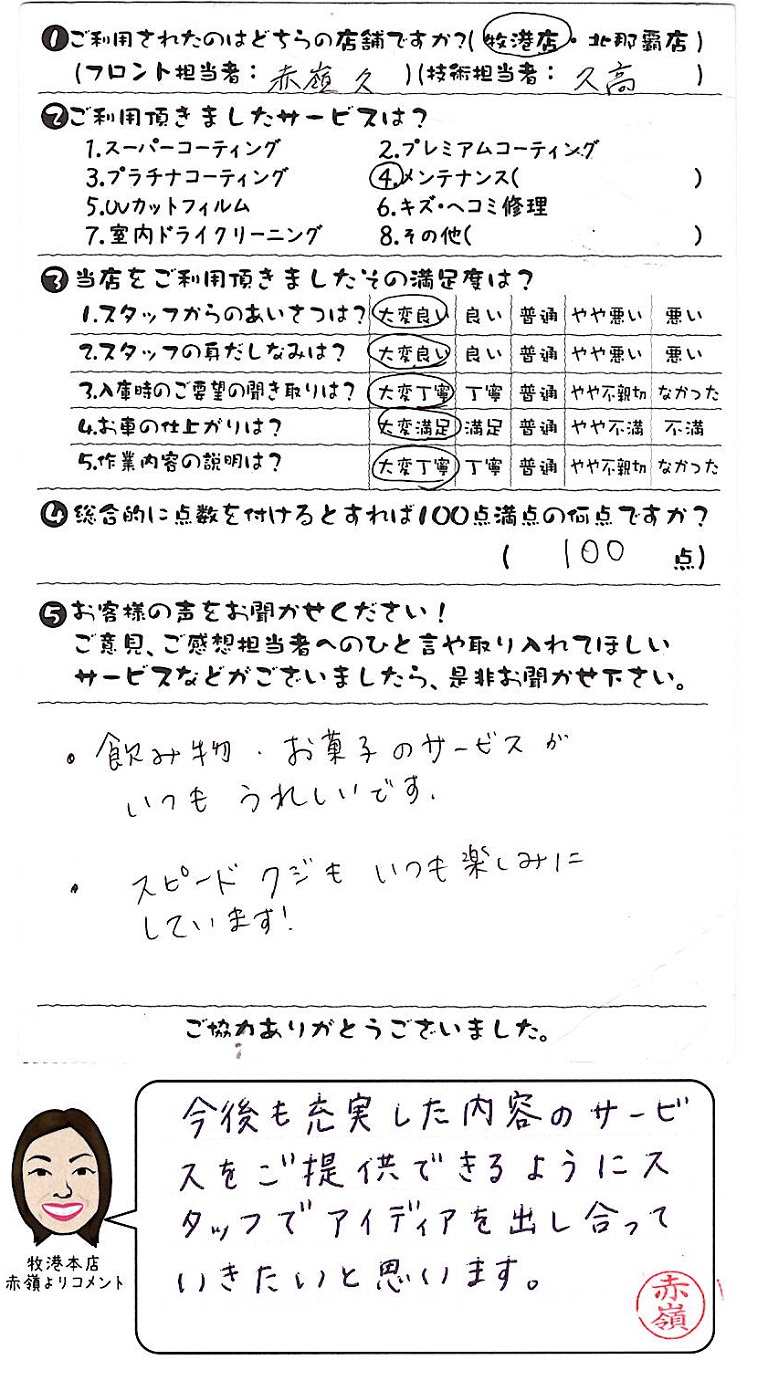 ❶ご利用されたのはどちらの店舗ですか?(牧港店・北那覇店)
(フロント担当者: 赤嶺 久 )(技術担当者: 久高 )
❷ご利用頂きましたサービスは?
1.スーパーコーティング 2.プレミアムコーティング
3.プラチナコーティング 4.メンテナンス( )
5.UVカットフィルム 6.キズ・ヘコミ修理
7.室内ドライクリーニング 8.その他( )
❸当店をご利用頂きましたその満足度は?
1.スタッフからのあいさつは? 大変良い 良い 普通 やや悪い 悪い
2.スタッフの身だしなみは? 大変良い 良い 普通 やや悪い 悪い
3.入庫時のご要望の聞き取りは? 大変丁寧 丁寧 普通 やや不親切 なかった
4.お車の仕上がりは? 大変満足 満足 普通 やや不満 不満
5.作業内容の説明は? 大変丁寧 丁寧 普通 やや不親切 なかった
❹総合的に点数を付けるとすれば100点満点の何点ですか?
( 100 点)
❺お客様の声をお聞かせください!
ご意見、ご感想担当者へのひと言や取り入れてほしい
サービスなどがございましたら、是非お聞かせ下さい。
・飲み物・お菓子のサービスが
いつも うれしいです.
・ スピードクジも いつも楽しみに
しています!
ご協力ありがとうございました。
今後も充実した内容のサービ
スをご提供できるようにス
タッフでアイディアを出し合って
いきたいと思います。
牧港本店
赤嶺よりコメント
赤嶺